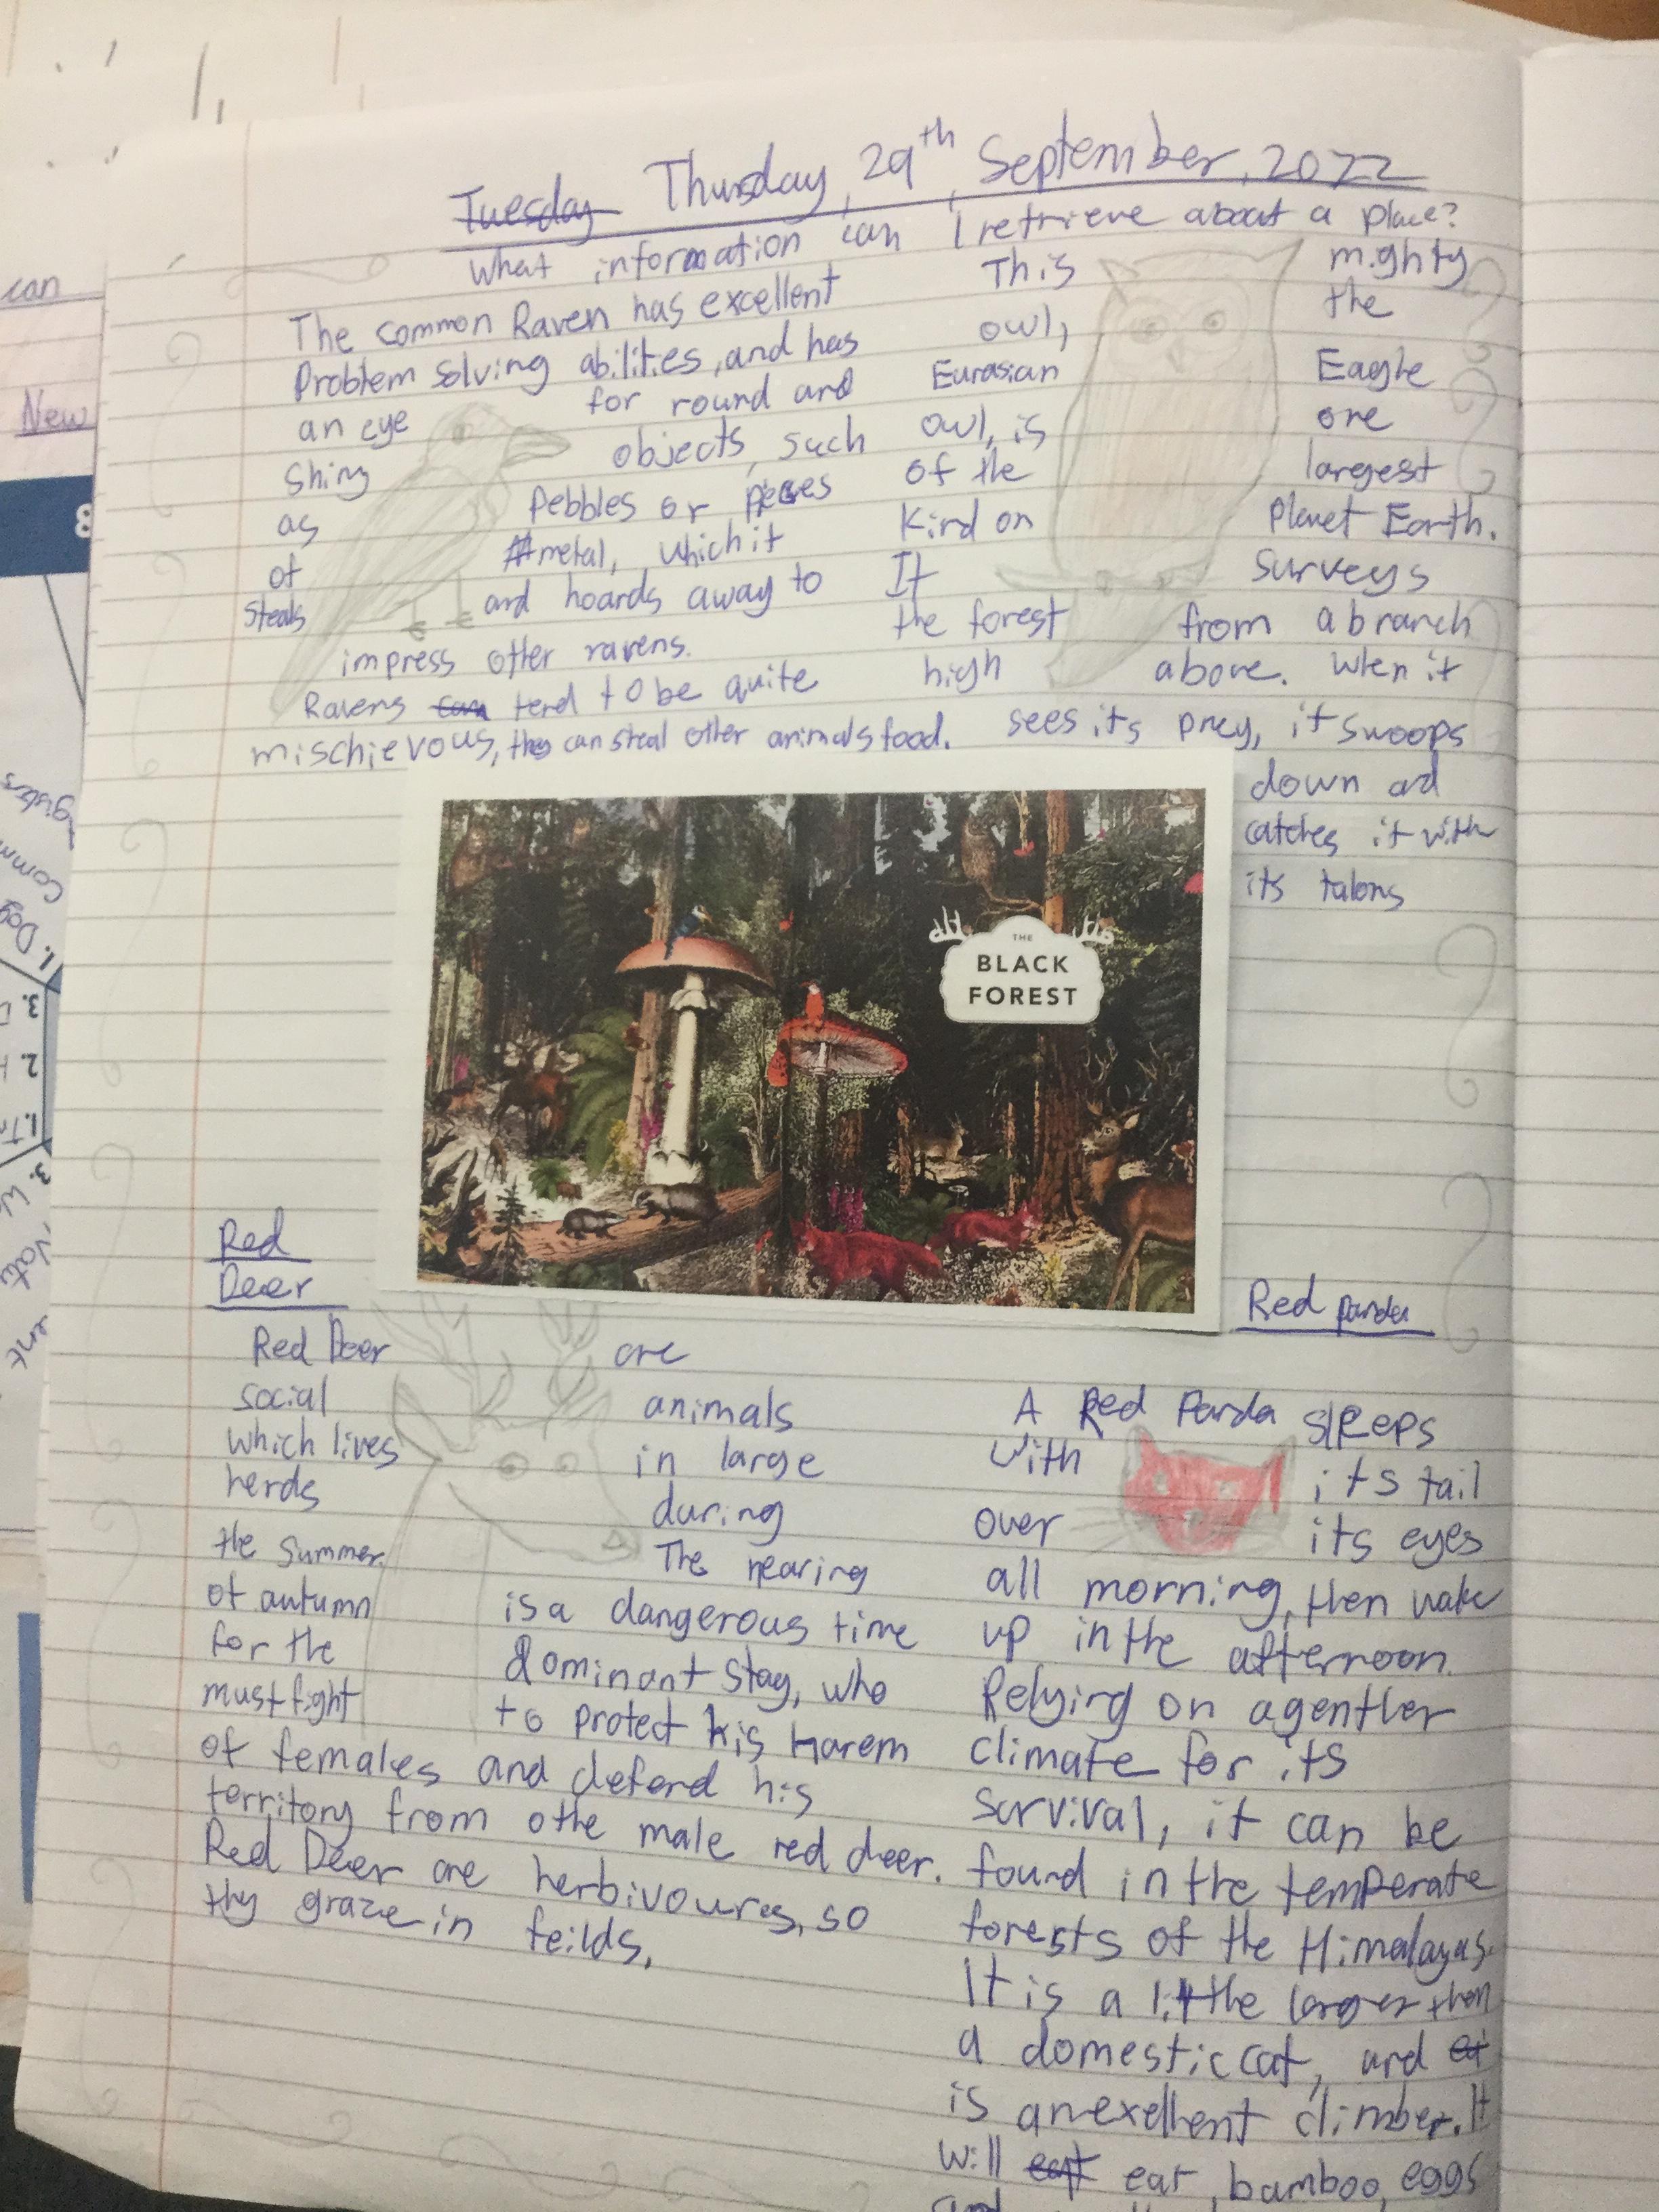 Tuesday Thursday, 29th, September, 2022
What information can I retrieve about a place?
The common Raven has excellent
Problem solving abilities, and has
an eye for round and
shiny objects, such
as pebbles or pieces
of metal, which it
steals and hoards away to
impress other ravens.
Ravens can tend to be quite
mischievous, they can steal other animals food.
This mighty
owl, the
Eurasian Eagle
owl, is one
of the largest
Kind on Planet Earth.
It surveys
the forest from a branch
high above. When it
sees its prey, it swoops
down ad
catches it with
its talons
THE
BLACK
FOREST
Red
Deer
Red Deer are
social animals
which lives in large
herds during
the summer. The nearing
of autumn is a dangerous time
for the dominant stag, who
must fight to protect his Harem
of females and defend his
territory from othe male red deer.
Red Deer are herbivoures, so
thy graze in feilds.
Red panda
A Red Panda sleeps
with its tail
over its eyes
all morning, then wake
up in the afternoon.
Relying on a gentler
climate for its
survival, it can be
found in the temperate
forests of the Himalayas.
It is a little larger than
a domestic cat, and eat
is an exellent climber. It
will eat eat bamboo, eggs
can
New
8
1. Dog
3.
2.
1.
3.